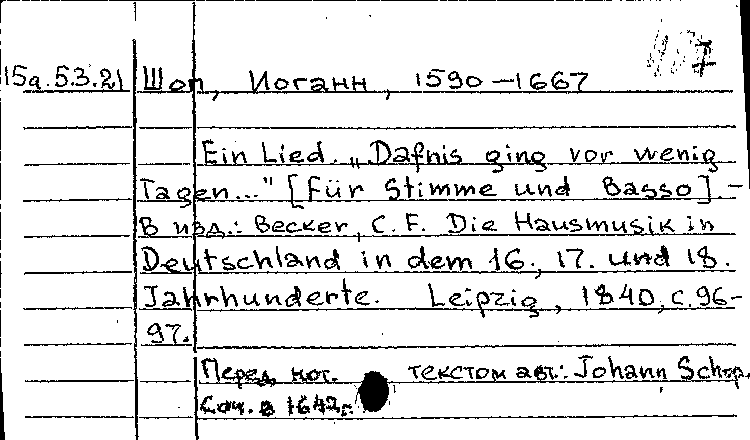 15a.5.3.21 Шоп, Иоганн, 1590–1667
Ein Lied. „Dafnis ging vor wenig
Tagen..." [Für Stimme und Basso]. –
В изд.: Becker, C. F. Die Hausmusik in
Deutschland in dem 16., 17. und 18.
Jahrhunderte. Leipzig, 1840, с. 96–
97.
Перед нот. текстом авт.: Johann Schop.
Соч. в 1642 г.